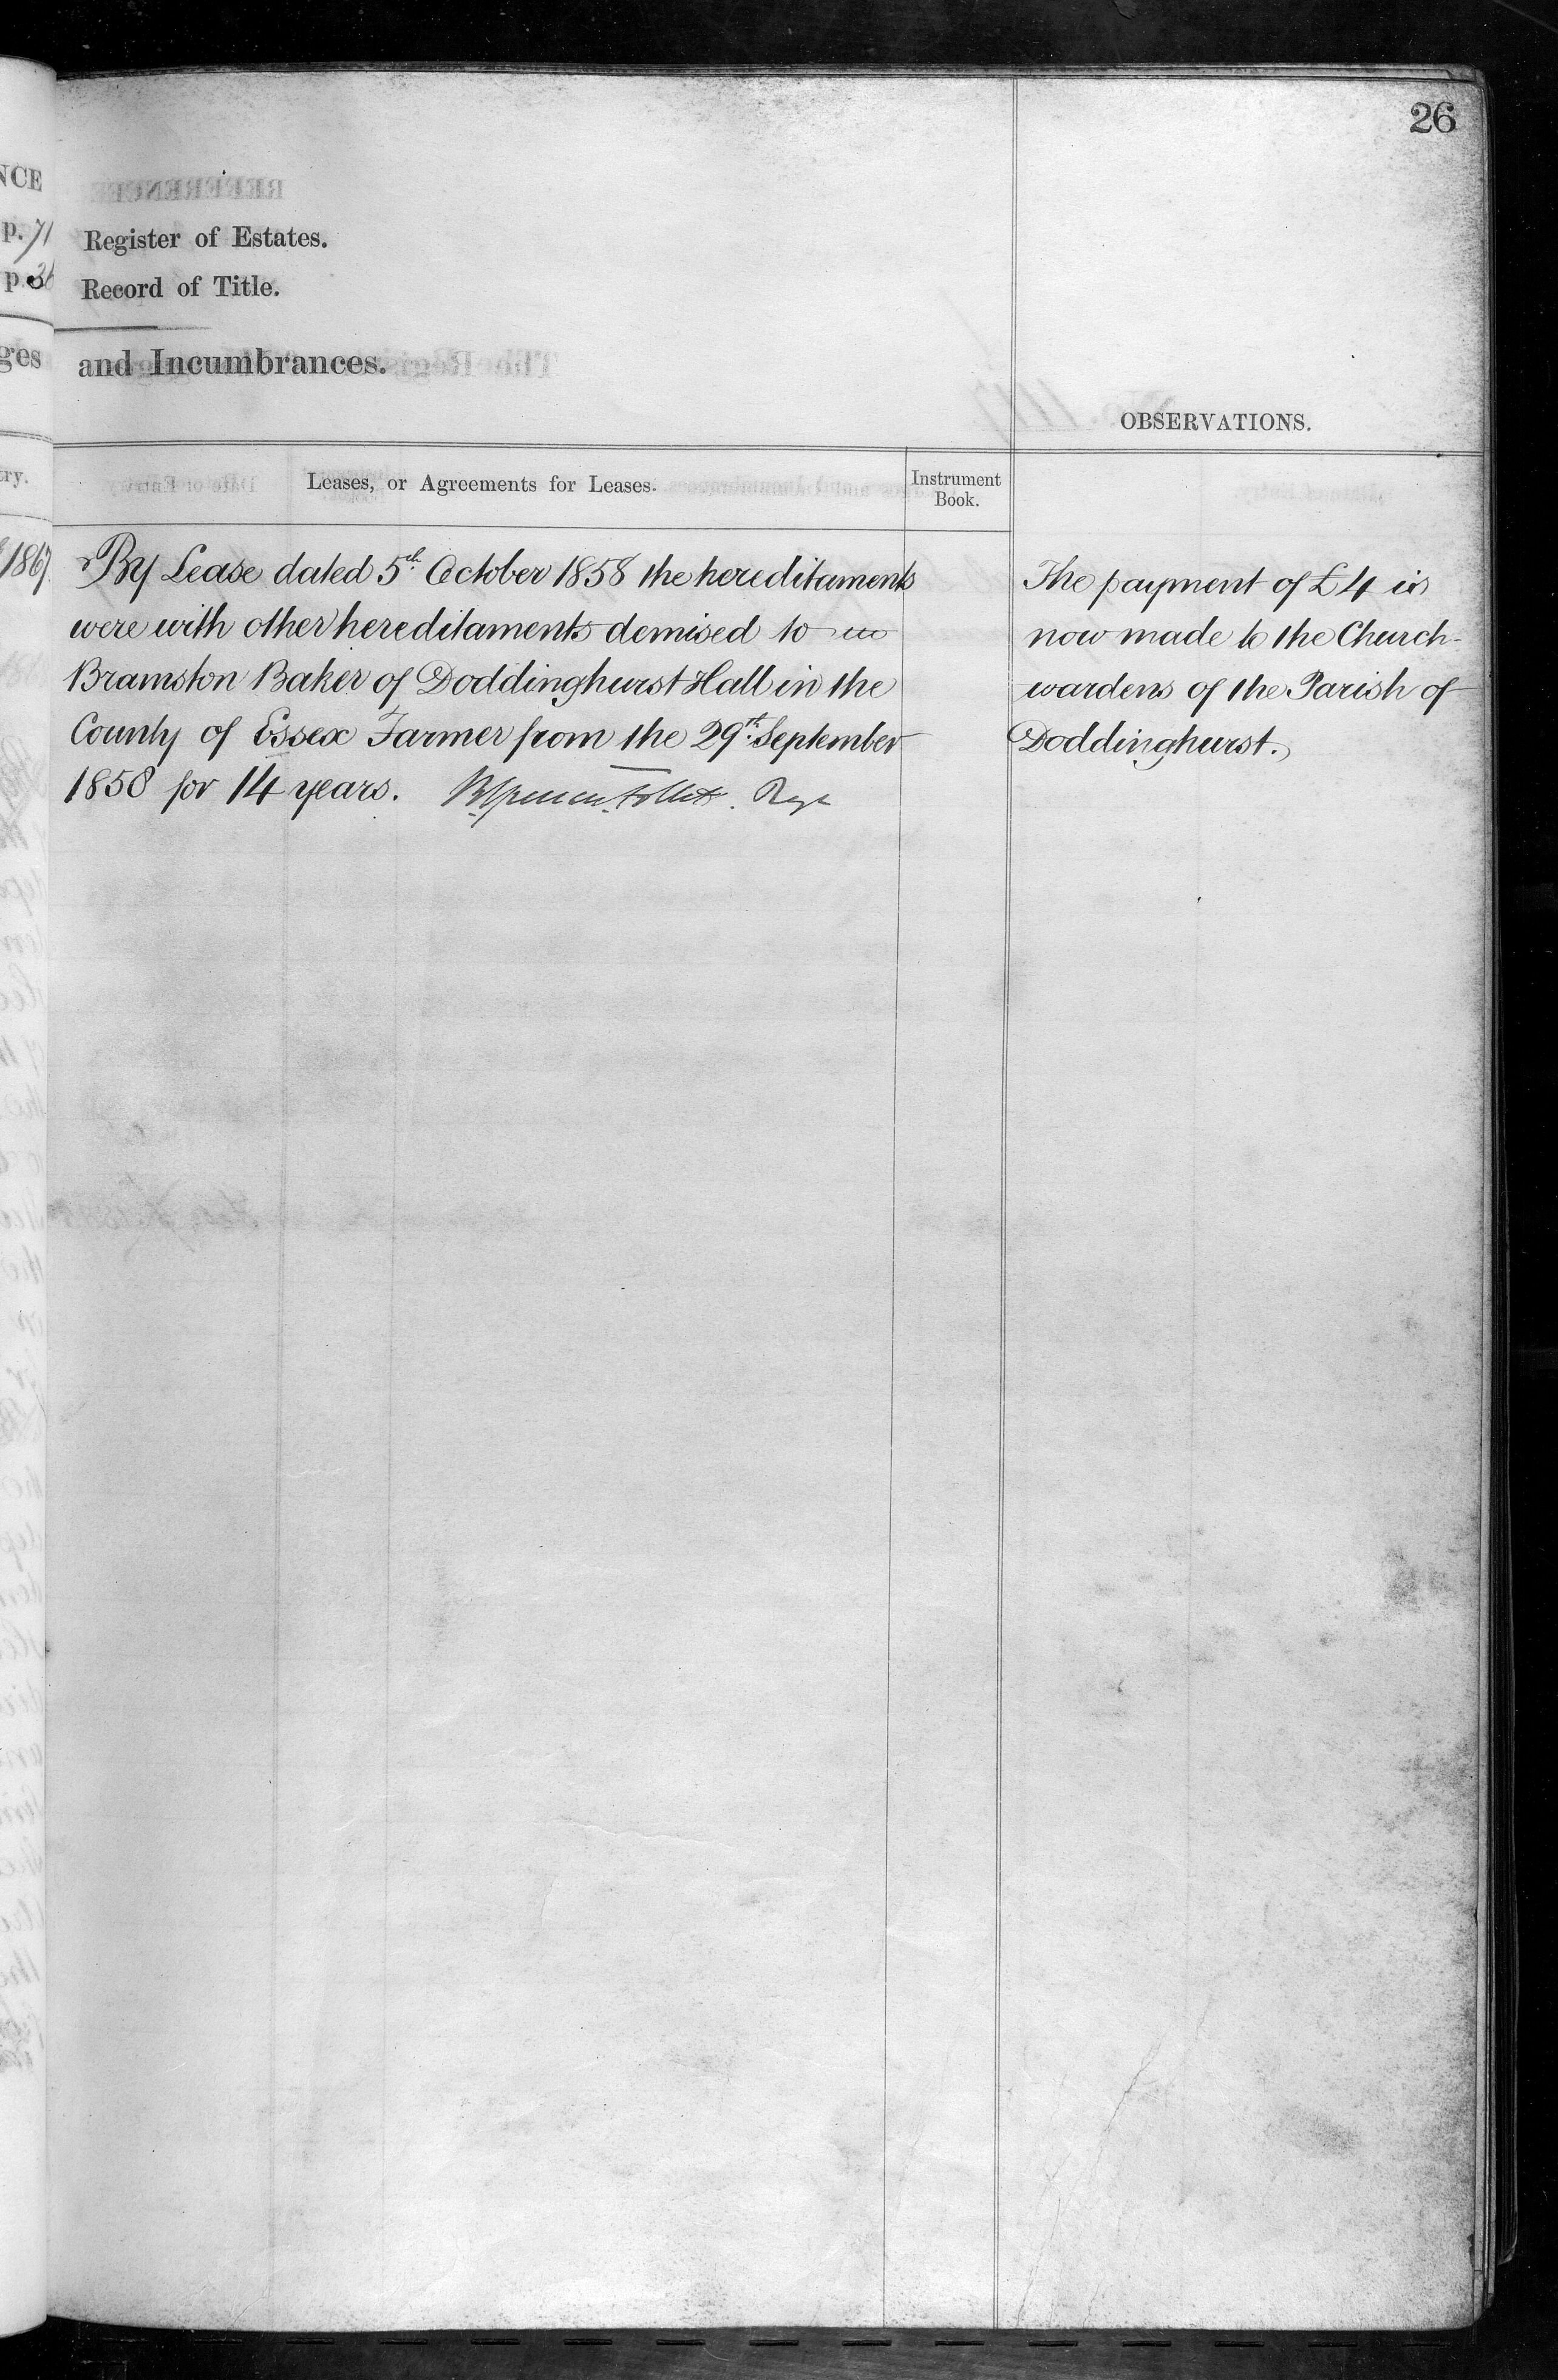 26
NCE
p. 71
p. 36
ges
try.
1867
Register of Estates.
Record of Title.
and Incumbrances.
OBSERVATIONS.
Leases, or Agreements for Leases.
Instrument
Book.
By Lease dated 5th October 1858 the hereditaments
were with other hereditaments demised to
Bramston Baker of Doddinghurst Hall in the
County of Essex Farmer from the 29th September
1858 for 14 years. Follett. Regr
The payment of £4 is
now made to the Church-
wardens of the Parish of
Doddinghurst.